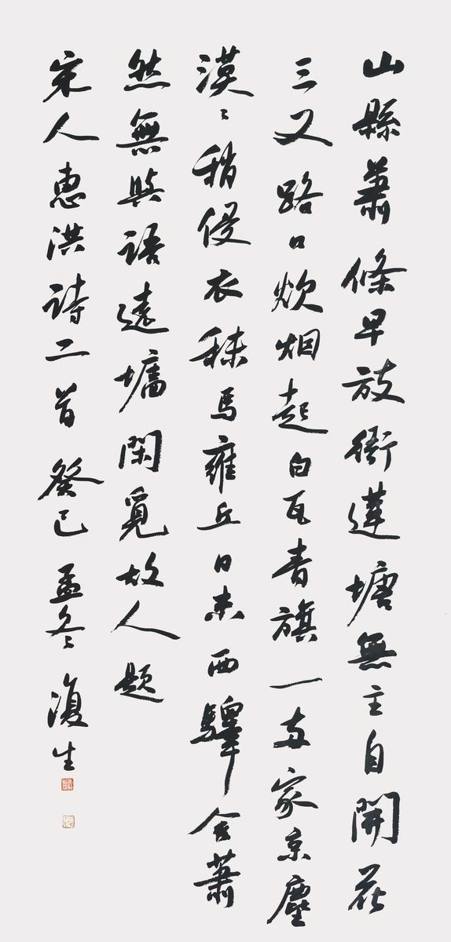 山縣蕭條早放衙蓮塘無主自開花
三叉路口炊烟起白瓦青旗一两家京塵
漠〻稍侵衣秣馬雍丘日未西驛舍蕭
然無與語遶墻閑覓故人題
宋人惠洪詩二首癸巳孟冬復生